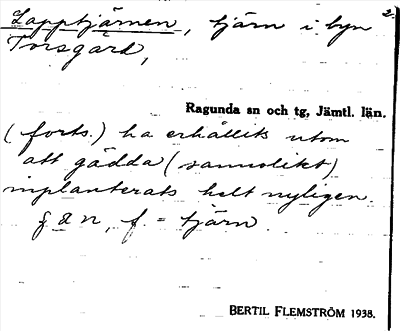 Lapptjärnen, tjärn i byn 2.
Torsgård,
Ragunda sn och tg, Jämtl. län.
(forts.) ha erhållits utom
att gädda (sannolikt)
inplanterats helt nyligen.
f. = tjärn
BERTIL FLEMSTRÖM 1938.